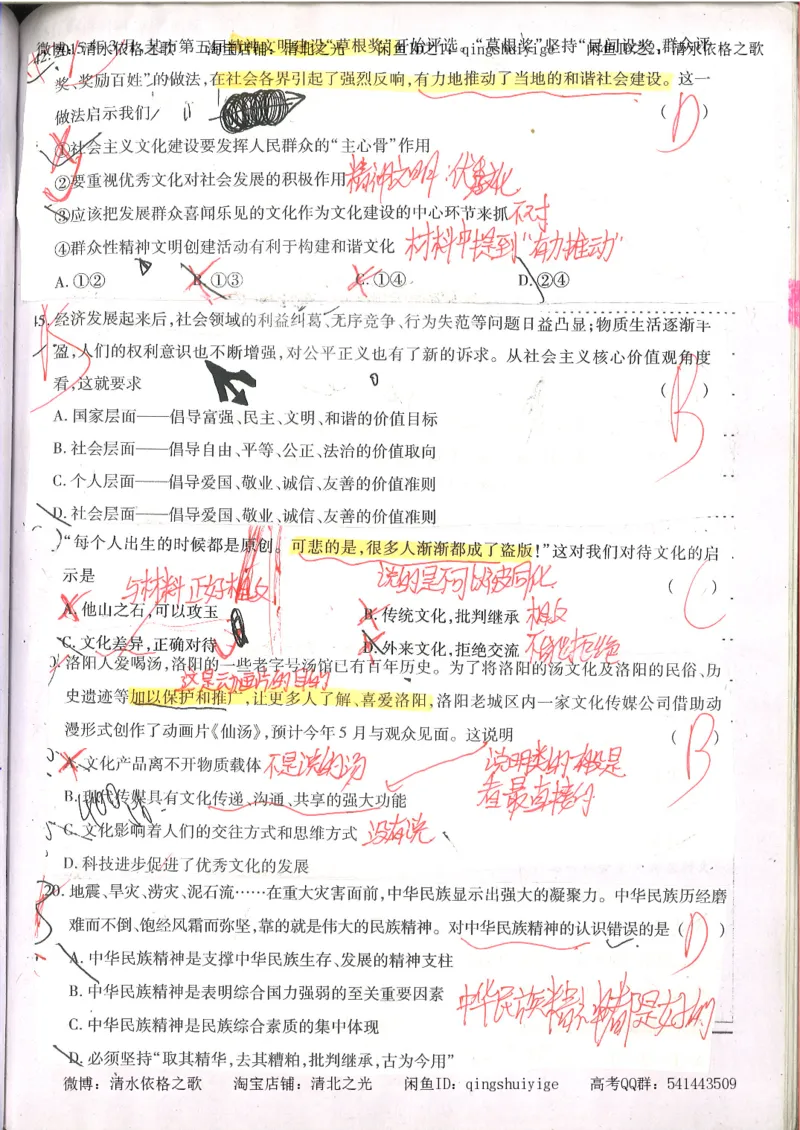 微博:清水依格之歌 淘宝店铺:清北之光 闲鱼ID:qingshuiyige 闲鱼ID2:清水依格之歌
5年3月,某市第五届精神文明建设“草根奖”开始评选。“草根奖”坚持“民间设奖,群众评
奖、奖励百姓”的做法,在社会各界引起了强烈反响,有力地推动了当地的和谐社会建设。这一
做法启示我们 ( D )
①社会主义文化建设要发挥人民群众的“主心骨”作用
②要重视优秀文化对社会发展的积极作用 精神文明:优秀文化
③应该把发展群众喜闻乐见的文化作为文化建设的中心环节来抓 不对
④群众性精神文明创建活动有利于构建和谐文化 材料中提到“有力推动”
A.①② B.①③ C.①④ D.②④
15.经济发展起来后,社会领域的利益纠葛、无序竞争、行为失范等问题日益凸显;物质生活逐渐丰
盈,人们的权利意识也不断增强,对公平正义也有了新的诉求。从社会主义核心价值观角度
看,这就要求 ( B )
A.国家层面——倡导富强、民主、文明、和谐的价值目标
B.社会层面——倡导自由、平等、公正、法治的价值取向
C.个人层面——倡导爱国、敬业、诚信、友善的价值准则
D.社会层面——倡导爱国、敬业、诚信、友善的价值准则
“每个人出生的时候都是原创。可悲的是,很多人渐渐都成了盗版!”这对我们对待文化的启
示是 与材料正好相反 说的是不可以被同化 ( C )
A.他山之石,可以攻玉 B.传统文化,批判继承 相反
C.文化差异,正确对待 D.外来文化,拒绝交流 不能拒绝
洛阳人爱喝汤,洛阳的一些老字号汤馆已有百年历史。为了将洛阳的汤文化及洛阳的民俗、历
这是动画片的目的
史遗迹等加以保护和推广,让更多人了解、喜爱洛阳,洛阳老城区内一家文化传媒公司借助动
漫形式创作了动画片《仙汤》,预计今年5月与观众见面。这说明 ( B )
A.文化产品离不开物质载体 不是说的汤 说明类的一般是看最直接的
B.现代传媒具有文化传递、沟通、共享的强大功能
C.文化影响着人们的交往方式和思维方式 没有说
D.科技进步促进了优秀文化的发展
20.地震、旱灾、涝灾、泥石流……在重大灾害面前,中华民族显示出强大的凝聚力。中华民族历经磨
难而不倒、饱经风霜而弥坚,靠的就是伟大的民族精神。对中华民族精神的认识错误的是( D )
A.中华民族精神是支撑中华民族生存、发展的精神支柱
B.中华民族精神是表明综合国力强弱的至关重要因素
C.中华民族精神是民族综合素质的集中体现
D.必须坚持“取其精华,去其糟粕,批判继承,古为今用”
微博:清水依格之歌 淘宝店铺:清北之光 闲鱼ID:qingshuiyige 高考QQ群:541443509